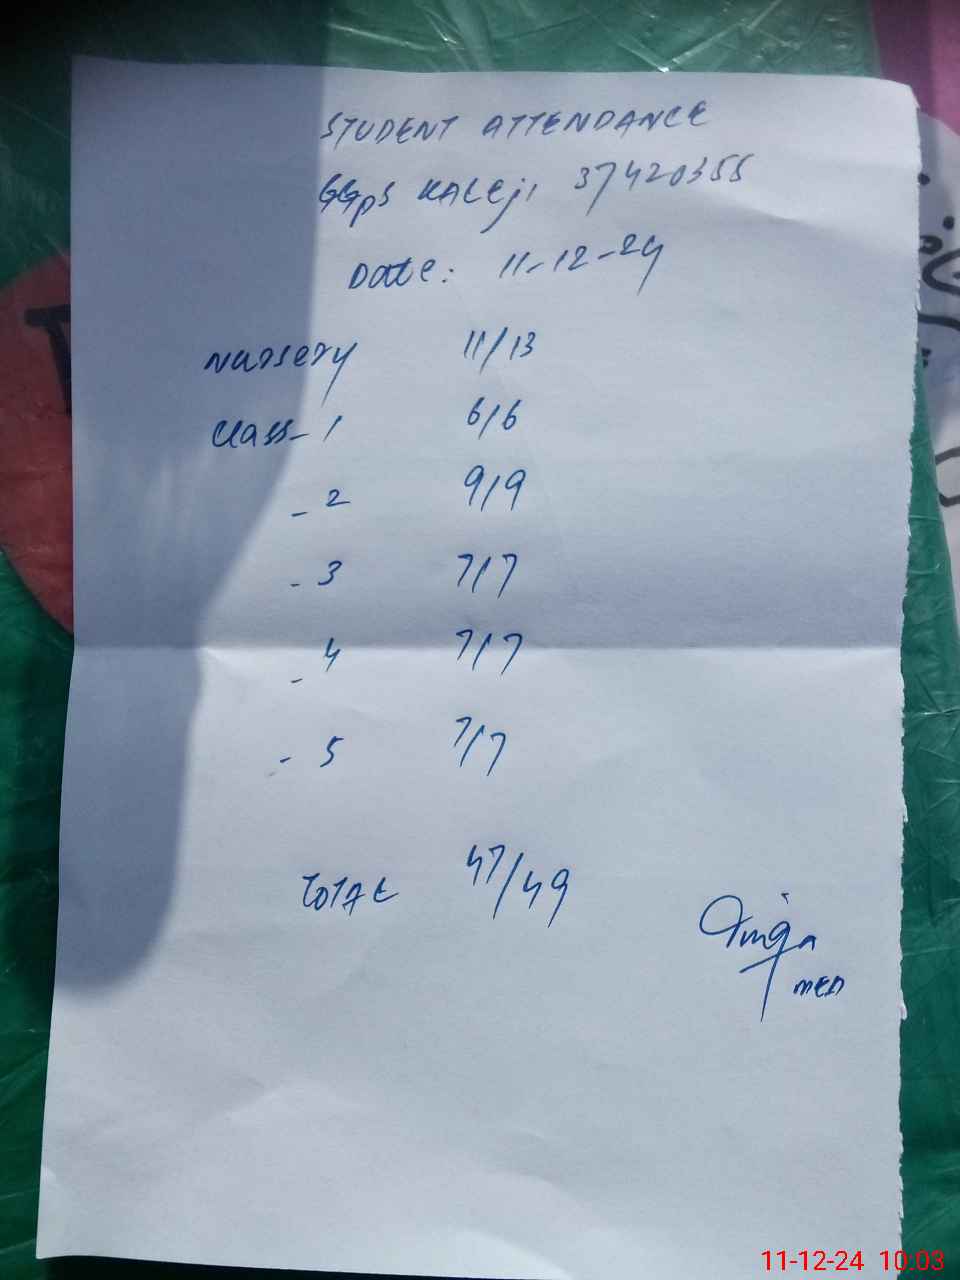 STUDENT ATTENDANCE
GGPS KALEJI 37420355
Date: 11-12-24
Nursery 11/13
Class - 1 6/6
- 2 9/9
- 3 7/7
- 4 7/7
- 5 7/7
TOTAL 47/49
11-12-24 10:03